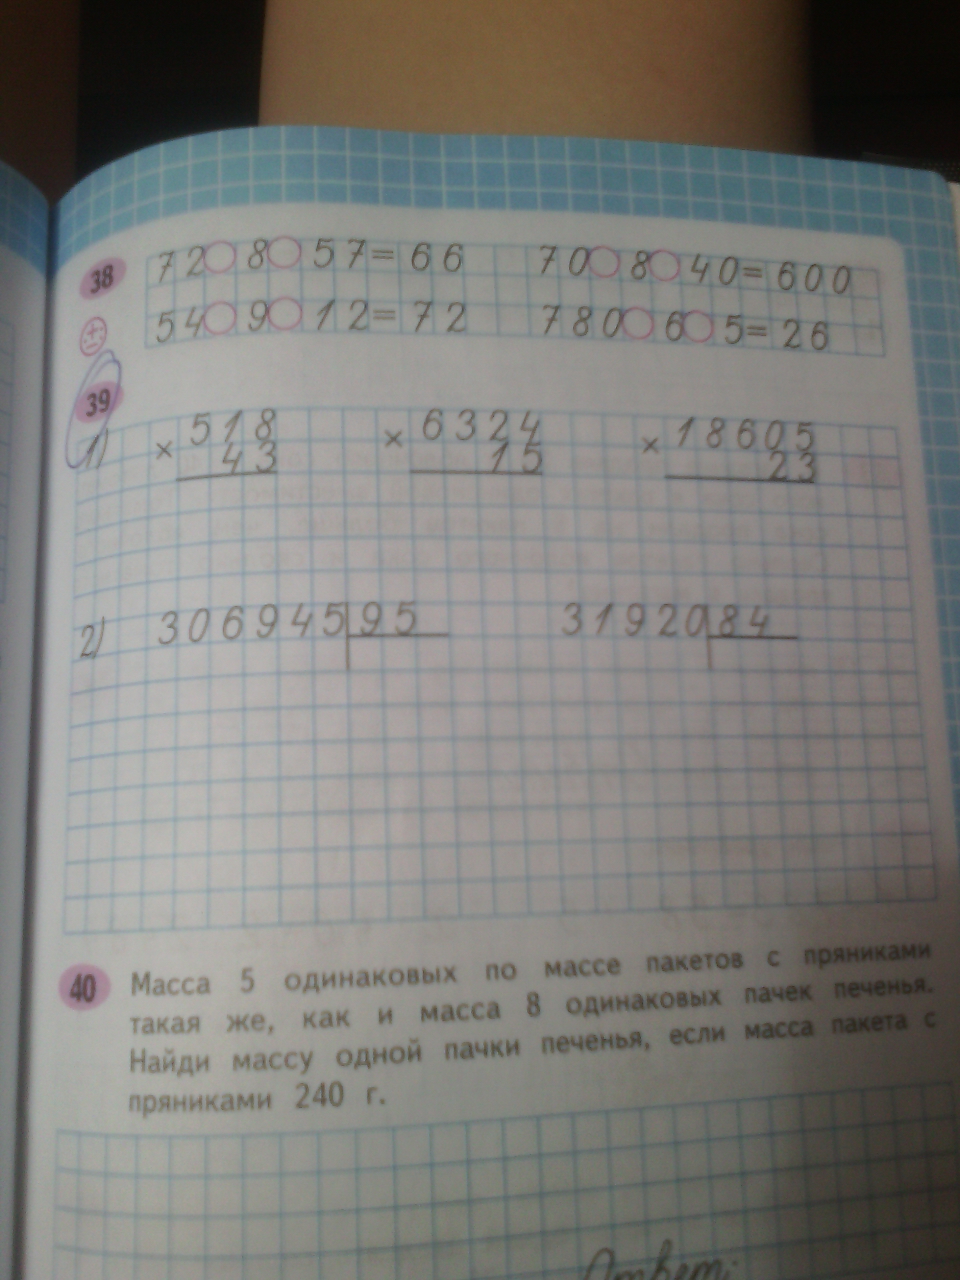 38 72○8○57=66 70○8○40=600
54○9○12=72 780○6○5=26
39
1) × 518 × 6324 × 18605
43 15 23
2) 306945 95 31920 84
40 Масса 5 одинаковых по массе пакетов с пряниками
такая же, как и масса 8 одинаковых пачек печенья.
Найди массу одной пачки печенья, если масса пакета с
пряниками 240 г.
Ответ: